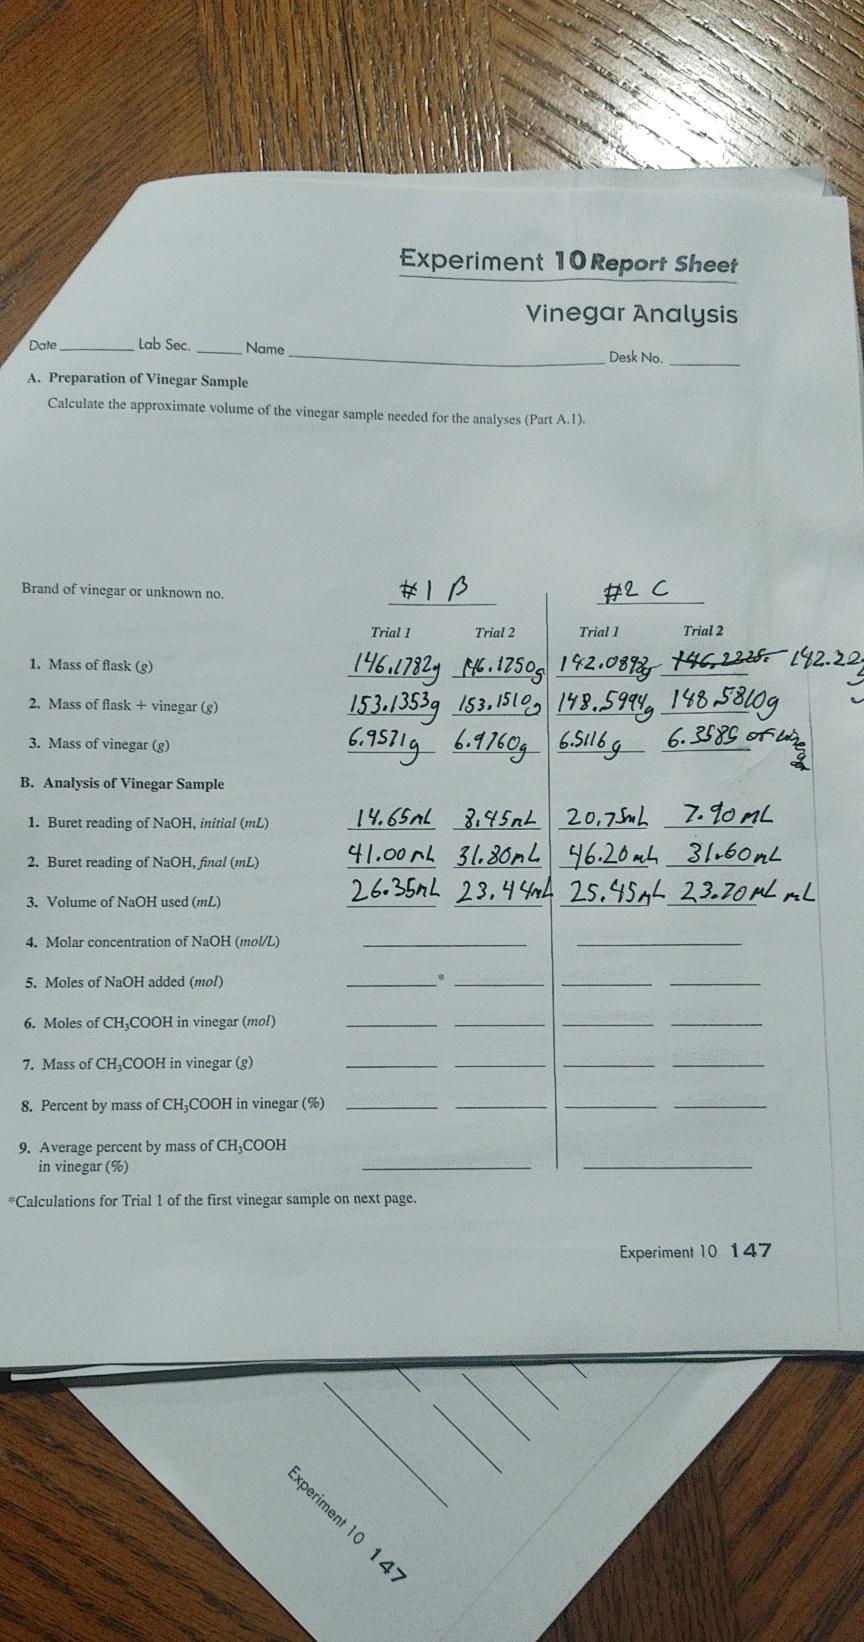 Experiment 10 Report Sheet
Vinegar Analysis
Date ________ Lab Sec. _____ Name ________ Desk No. ________
A. Preparation of Vinegar Sample
Calculate the approximate volume of the vinegar sample needed for the analyses (Part A.1).
Brand of vinegar or unknown no. #1 B #2 C
Trial 1 Trial 2 Trial 1 Trial 2
1. Mass of flask (g) 146.1782g 146.1750g 142.0892g 142.22
2. Mass of flask + vinegar (g) 153.1353g 153.1510g 148.5994g 148.5810g
3. Mass of vinegar (g) 6.9571g 6.9760g 6.5116g 6.3585 of
B. Analysis of Vinegar Sample
1. Buret reading of NaOH, initial (mL) 14.65mL 8.45mL 20.75mL 7.90 mL
2. Buret reading of NaOH, final (mL) 41.00mL 31.80mL 46.20mL 31.60mL
3. Volume of NaOH used (mL) 26.35mL 23.44mL 25.45mL 23.70mL mL
4. Molar concentration of NaOH (mol/L)
5. Moles of NaOH added (mol) *
6. Moles of CH₃COOH in vinegar (mol)
7. Mass of CH₃COOH in vinegar (g)
8. Percent by mass of CH₃COOH in vinegar (%)
9. Average percent by mass of CH₃COOH
in vinegar (%)
*Calculations for Trial 1 of the first vinegar sample on next page.
Experiment 10 147
Experiment 10 147